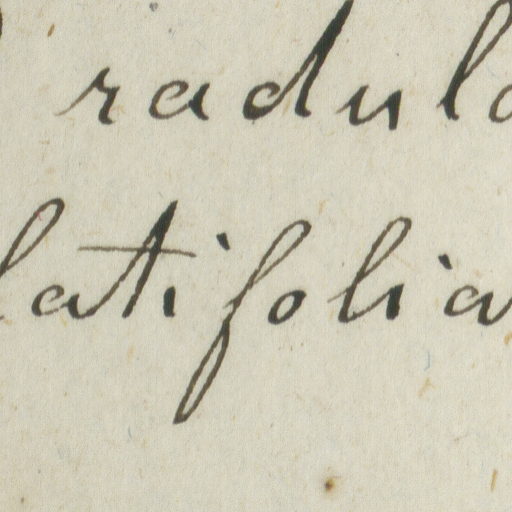 radula
latifolia